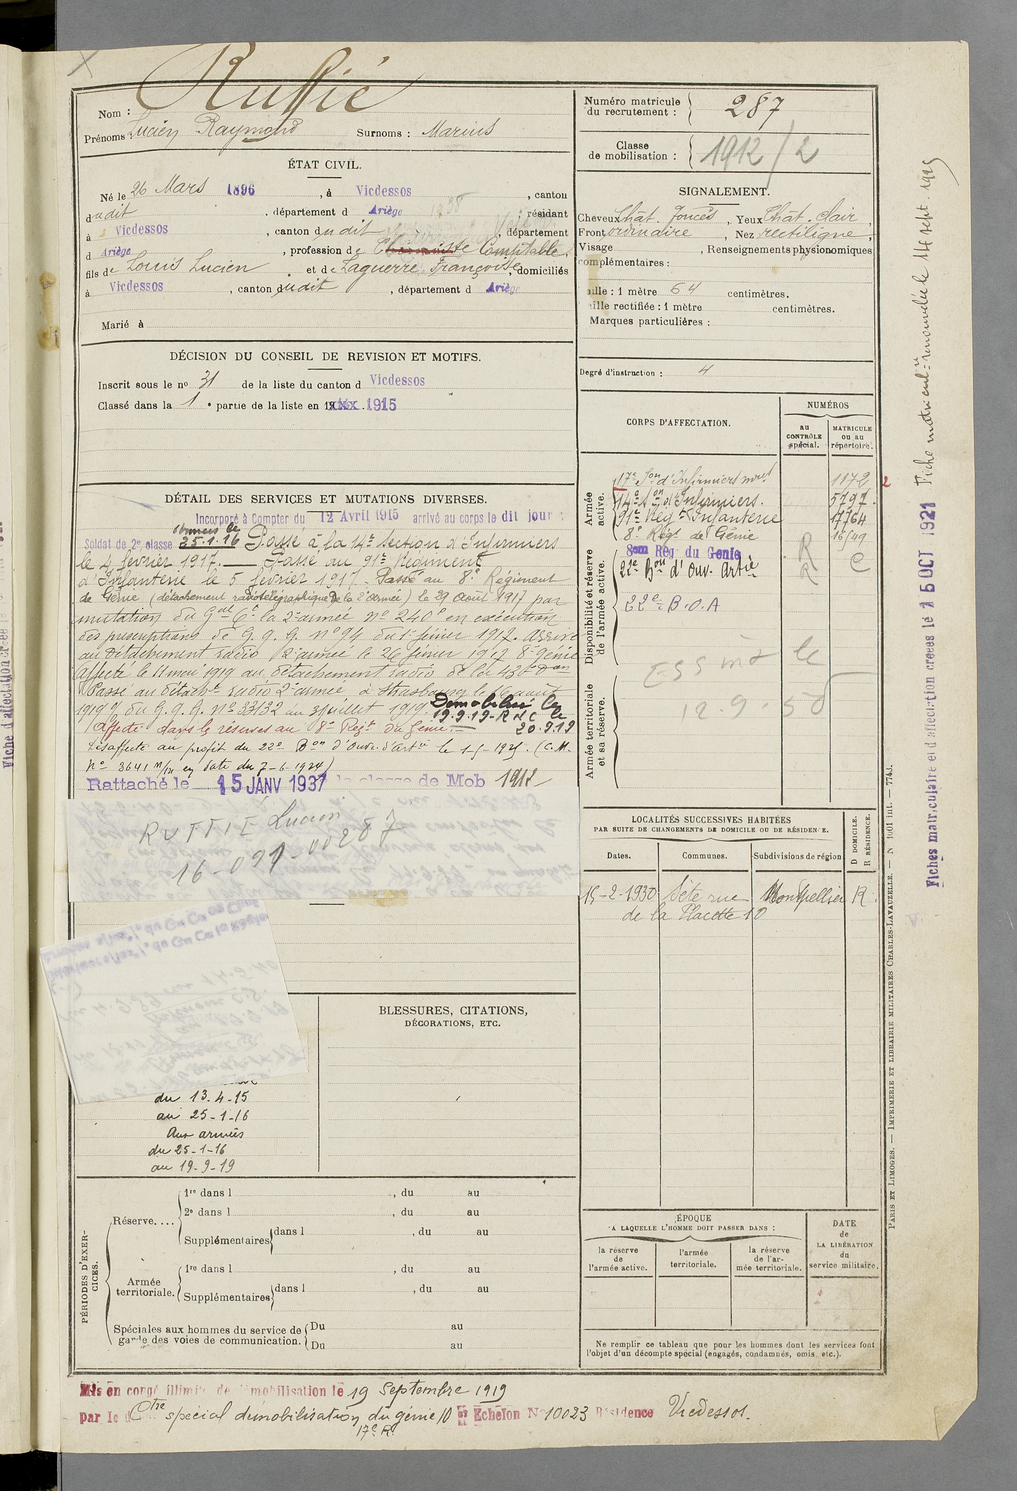 Ruffié
Nom :
Prénoms : Lucien Raymond Surnoms : Marius
Numéro matricule du recrutement : 287
Classe de mobilisation : 1912/2
ÉTAT CIVIL.
Né le 26 Mars 1896, à Vicdessos, canton
dudit, département d Ariège, résidant
à Vicdessos, canton dudit, département
d Ariège, profession de Comptable
fils de Louis Lucien et de Laguerre Françoise, domiciliés
à Vicdessos, canton dudit, département d Ariège
Marié à
SIGNALEMENT.
Cheveux Chât. foncés, Yeux Chat. clair,
Front ordinaire, Nez rectiligne,
Visage , Renseignements physionomiques
complémentaires :
Taille : 1 mètre 64 centimètres.
Taille rectifiée : 1 mètre centimètres.
Marques particulières :
Degré d'instruction : 4
DÉCISION DU CONSEIL DE REVISION ET MOTIFS.
Inscrit sous le nº 31 de la liste du canton d Vicdessos
Classé dans la 1e partie de la liste en 1915
DÉTAIL DES SERVICES ET MUTATIONS DIVERSES.
Incorporé à Compter du 12 Avril 1915 arrivé au corps le dit jour
Soldat de 2e classe 25.1.16 Passé à la 14e Section d'Infirmiers
le 4 février 1917. — Passé au 91e Régiment
d'Infanterie le 5 février 1917. Passé au 8e Régiment
de Génie (détachement radiotélégraphique de la 2e armée) le 29 Août 1917 par
mutation du Gal Ct la 2e armée Nº 240 en exécution
des prescriptions de G.Q.G. nº 94 du 1er février 1917. Arrivé
au détachement radio 2e armée le 26 février 1917 8e génie
affecté le 11 mai 1919 au détachement radio de la
Passé au détacht radio 2e armée à Strasbourg le 6 août
1919 du G.Q.G. Nº 33132 du 31 juillet 1919. Démobilisé le
19-9-19 - R d C le 20-9-19
Affecté dans les réserves au 8e Régt du Génie. —
désaffecté au profit du 22e Bon d'Ouvr. d'Artie le 1-5-1925. (C.M.
Nº 3641 en date du 7-6-1924)
Rattaché le 15 JANV 1937 la classe de Mob 1912
RUFFIE Lucien
16-091-00287
CORPS D'AFFECTATION.
NUMÉROS
AU CONTRÔLE spécial.
MATRICULE ou au répertoire.
Armée active.
17e Son d'Infirmiers mres 1172
14e Son d'Infirmiers. 5797
91e Rég. d'Infanterie 17764
8e Régt de Génie 16549
Disponibilité et réserve de l'armée active.
8eme Rég du Génie R
22e Bon d'Ouv. Artie R C
22e B.O.A
Armée territoriale et sa réserve.
12.9.50
LOCALITÉS SUCCESSIVES HABITÉES
PAR SUITE DE CHANGEMENTS DE DOMICILE OU DE RÉSIDENCE.
Dates. Communes. Subdivisions de région D DOMICILE. R RÉSIDENCE.
15-2-1930 Sète rue de la Placette 10 Montpellier R
BLESSURES, CITATIONS,
DÉCORATIONS, ETC.
du 13-4-15
au 25-1-16
Aux armées
du 25-1-16
au 19-9-19
PÉRIODES D'EXERCICES.
Réserve.... 1re dans l , du au
2e dans l , du au
Supplémentaires dans l , du au
Armée territoriale. 1re dans l , du au
Supplémentaires dans l , du au
Spéciales aux hommes du service de garde des voies de communication. Du au
Du au
ÉPOQUE
A LAQUELLE L'HOMME DOIT PASSER DANS :
la réserve de l'armée active.
l'armée territoriale.
la réserve de l'armée territoriale.
DATE de LA LIBÉRATION du service militaire.
Ne remplir ce tableau que pour les hommes dont les services font
l'objet d'un décompte spécial (engagés, condamnés, omis, etc.).
Mis en congé illimité de démobilisation le 19 Septembre 1919
par le d Ctre spécial démobilisation du génie 10e Echelon Nº 10023 Résidence Vicdessos.
17e R.
PARIS ET LIMOGES. — IMPRIMERIE ET LIBRAIRIE MILITAIRES CHARLES-LAVAUZELLE. — N 1001 int. — 7743.
Fiches matriculaire et d'affectation créées le 15 OCT 1921 Fiche matricul.re renouvelée le 14 sept. 1925